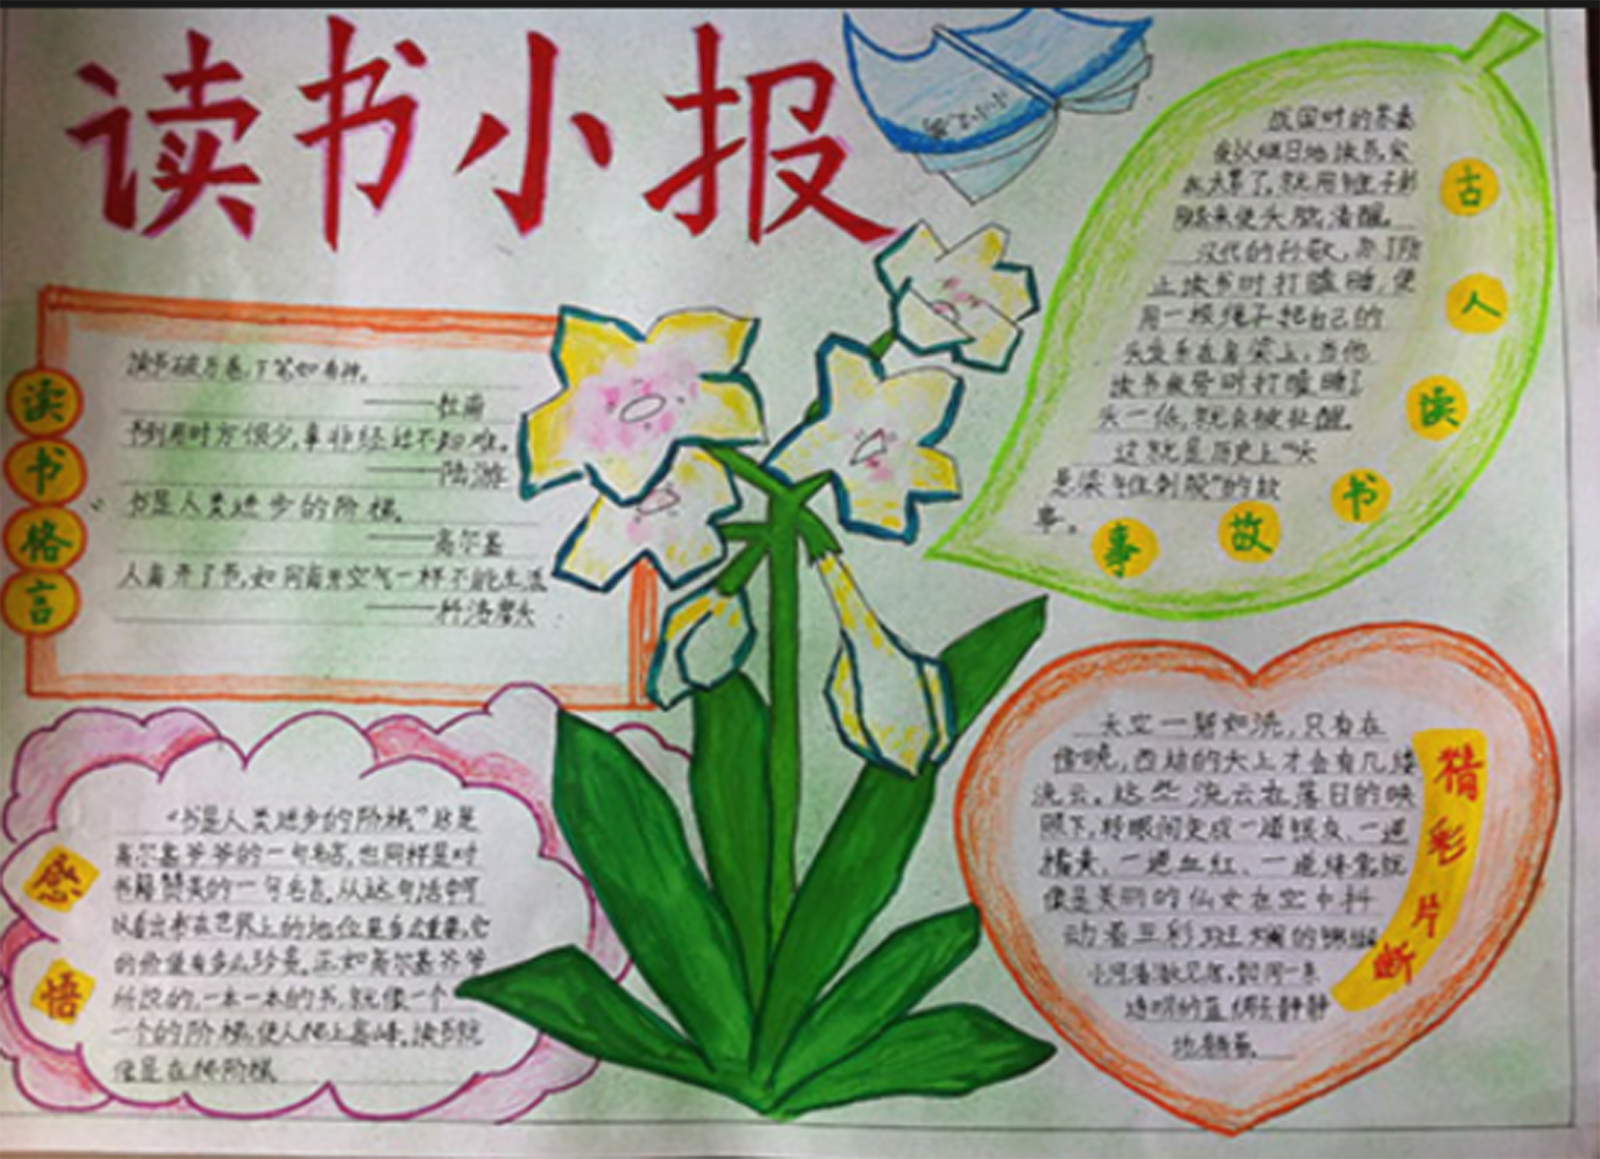 读书小报
读书格言
读书破万卷,下笔如有神。
——杜甫
书到用时方恨少,事非经过不知难。
——陆游
书是人类进步的阶梯。
——高尔基
人离开了书,如同离开空气一样不能生活
——科洛廖夫
古人读书故事
战国时的苏秦
夜以继日地读书,实
在太累了,就用锥子刺
腿来使头脑清醒。
汉代的孙敬,为了防
止读书时打瞌睡,便
用一根绳子把自己的
头发系在房梁上,当他
读书疲劳时打瞌睡了
头一低,就会被扯醒。
这就是历史上“头
悬梁锥刺股”的故
事。
感悟
“书是人类进步的阶梯”这是
高尔基爷爷的一句名言,也同样是对
书籍赞美的一句名言。从这句话中可
以看出书在世界上的地位是多么重要,它
的价值有多么珍贵。正如高尔基爷爷
所说的,一本一本的书,就像一个
一个的阶梯,使人爬上高峰。读书就
像是在爬阶梯。
精彩片断
天空一碧如洗,只有在
傍晚,西边的天上才会有几缕
流云。这些流云在落日的映
照下,转眼间变成一道银灰、一道
橘黄、一道血红、一道绛紫,就
像是美丽的仙女在空中抖
动着五彩斑斓的锦缎
小河清澈见底,如同一条
透明的蓝绸子静静
地躺着。